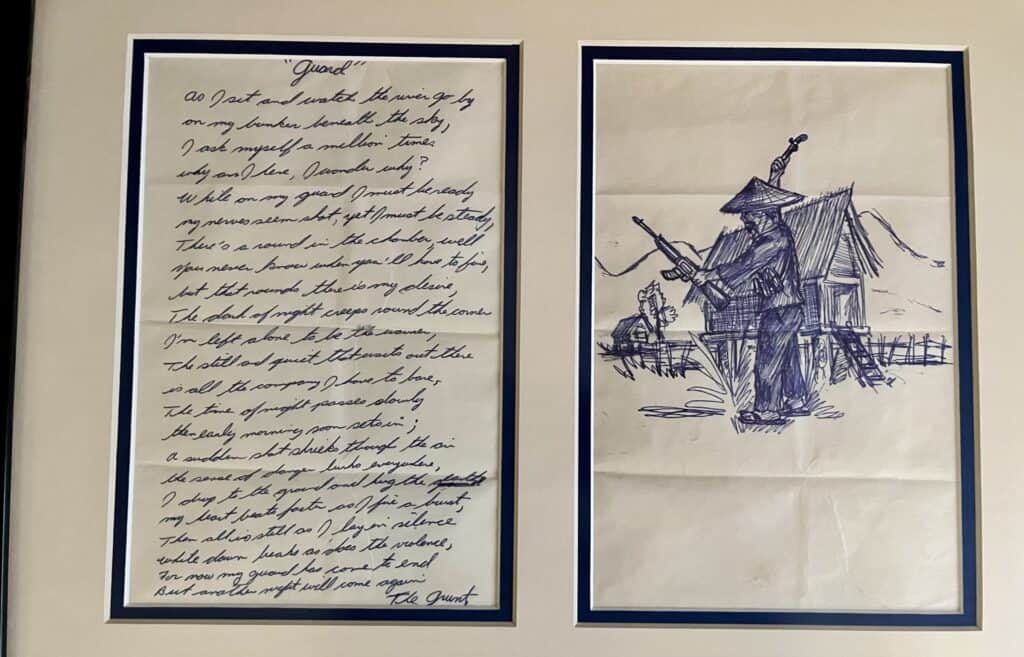 "Guard"
As I sit and watch the river go by
on my bunker beneath the sky,
I ask myself a million times
why am I here, I wonder why?
While on my guard I must be ready
my nerves seem shot, yet I must be steady,
There's a round in the chamber, well
you never know when you'll have to fire,
but that rounds there is my desire,
The dark of night creeps round the corner
I'm left alone to be the warner,
The still and quiet that waits out there
is all the company I have to bare,
The time of night passes slowly
then early morning soon sets in;
A sudden shot shrieks through the air
the sense of danger lurks everywhere,
I drop to the ground and hug the
my heart beats faster as I fire a burst,
Then all is still as I lay in silence
while dawn breaks as does the violence,
For now my guard has come to end
But another night will come again
The Grunt